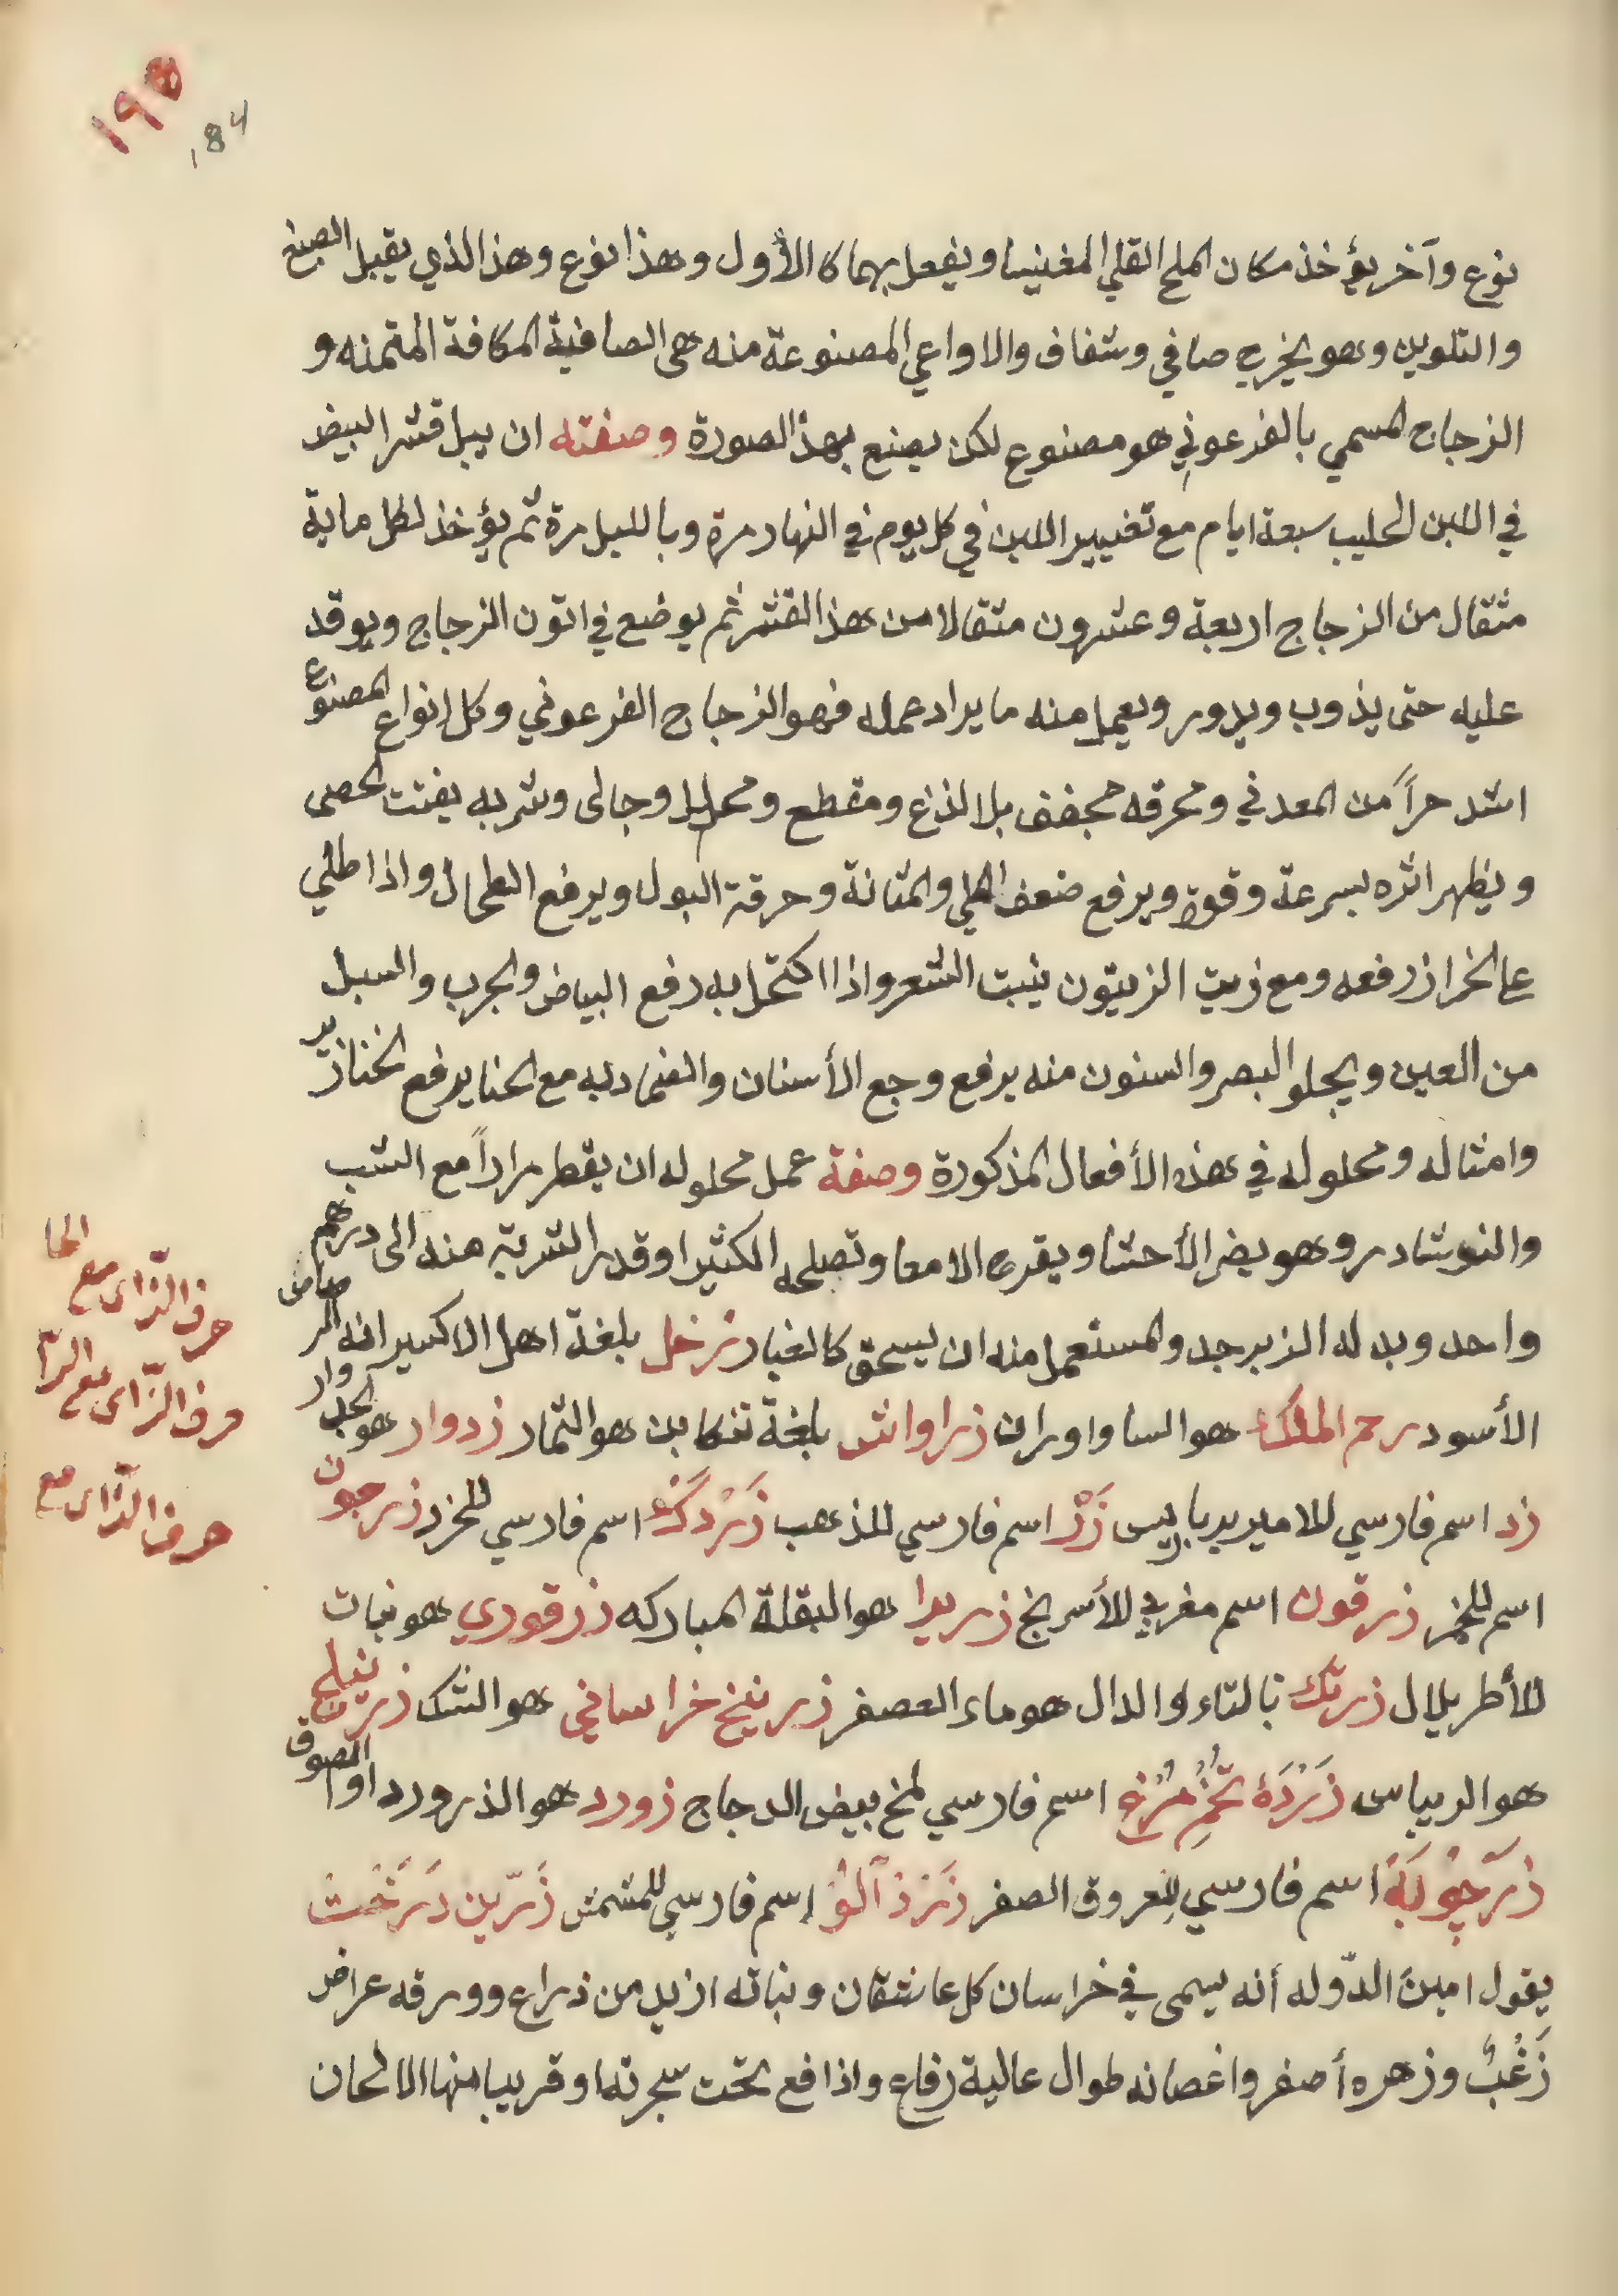 ١٩٥
184
نوع وآخر يؤخذ مكان الملح القلي المغنيسا ويفعل بهما كالأول وهذا نوع وهذا الذي يقبل الصبغ
والتلوين وهو يخرج صافي وشفاف والاواعي المصنوعة منه هي الصافية المكافة المتمنه و
الزجاج المسمي بالفرعوني هو مصنوع لكن يصنع بهذا الصورة وصفته ان يبل قشر البيض
في اللبن الحليب سبعة ايام مع تغيير اللبن في كل يوم في النهار مرة وبالليل مرة ثم يؤخذ لكل ماية
مثقال من الزجاج اربعة وعشرون مثقالا من هذا القشر ثم يوضع في اتون الزجاج ويوقد
عليه حتى يذوب ويدور ويعمل منه ما يراد عمله فهو الزجاج الفرعوني وكل انواع المصنوع
اشد حراً من المعدني ومحرقه مجفف بلا لذع ومقطع ومحلل وجالى وشربه يفتت الحصى
ويظهر اثره بسرعة وقوة ويرفع ضعف الكلي والمثانة وحرقة البول ويرفع الطحال واذا طلي
على الخراز رفعه ومع زيت الزيتون ينبت الشعر واذا اكتحل به رفع البياض والجرب والسبل
من العين ويجلو البصر والسنون منه يرفع وجع الأسنان والضماد به مع الحنا يرفع الخنازير
وامثاله ومحلوله في هذه الأفعال المذكورة وصفة عمل محلوله ان يقطر مراراً مع الشب
والنوشادر وهو يضر الأحشا ويقرح الامعا وتصلحه الكثيرا وقدر الشربة منه الى درهم
واحد وبدله الزبرجد والمستعمل منه ان يسحق كالغبار زخل بلغة اهل الاكسير انه الرصاص
الأسود زحم الملك هو الساواوران زراوانش بلغة تنكابن هو الثمار زدوار هو الجدوار
زر اسم فارسي للاميربرباريس زَرْ اسم فارسي للذهب زَرْدَك اسم فارسي للخزر زرجون
اسم للخمر زرقون اسم مغربي للأسرنج زريرا هو البقلة المباركه زرقوري هو نبات
للأطريلال زرتك بالتاء والدال هو ماء العصفر زرنيخ خراساني هو الشك زرنيلج
هو الريباس زَرْدَهٔ تُخْمِ مُرْغ اسم فارسي لمخ بيض الدجاج زورد هو الذرورد او الصوف
زَرَچُوبَهْ اسم فارسي للعروق الصفر زَرْد آلُو اسم فارسي للمشمش زَرّين دَرَخْت
يقول امين الدّوله أنه يسمى في خراسان كل عاشقان ونباته ازيد من ذراع وورقه عراض
زَغْبٌ وزهره أصفر واغصانه طوال عالية رفاع واذا فع تحت سجرته او قريبا منها الالحان
حرف الزّاى مع الحا
حرف الزّاى مع الرّا
حرف الزّاى مع